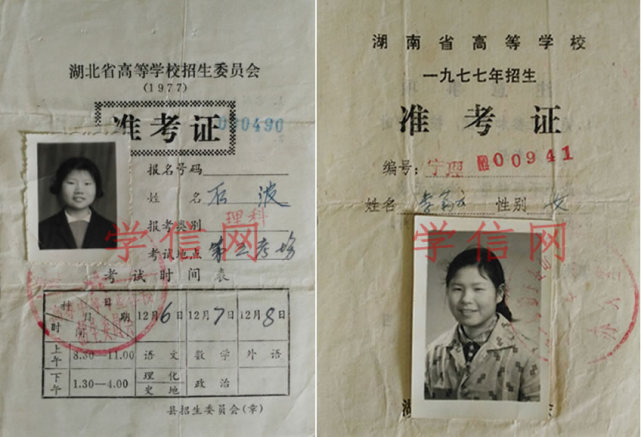 湖北省高等学校招生委员会
(1977)
准考证
000490
报名号码
姓名 石波
报考类别 理科
考试地点
学信网
考试时间表
日期 科目 时间 12月6日 12月7日 12月8日
上午 8.30—11.00 语文 数学 外语
下午 1.30—4.00 理化 史地 政治
县招生委员会(章)
湖南省高等学校
一九七七年招生
准考证
编号: 宁理 000941
姓名 性别 女
学信网
湖